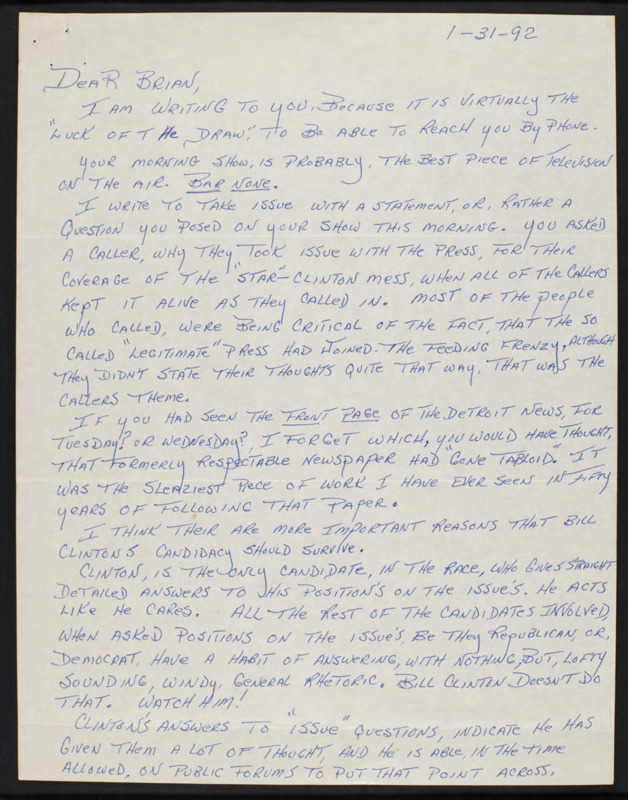 1-31-92
DEAR BRIAN,
I AM WRITING TO YOU, BECAUSE IT IS VIRTUALLY THE
"LUCK OF THE DRAW", TO BE ABLE TO REACH YOU BY PHONE.
YOUR MORNING SHOW, IS PROBABLY, THE BEST PIECE OF TELEVISION
ON THE AIR. BAR NONE.
I WRITE TO TAKE ISSUE WITH A STATEMENT, OR, RATHER A
QUESTION YOU POSED ON YOUR SHOW THIS MORNING. YOU ASKED
A CALLER, WHY THEY TOOK ISSUE WITH THE PRESS, FOR THEIR
COVERAGE OF THE "STAR"-CLINTON MESS, WHEN ALL OF THE CALLERS
KEPT IT ALIVE AS THEY CALLED IN. MOST OF THE PEOPLE
WHO CALLED, WERE BEING CRITICAL OF THE FACT, THAT THE SO
CALLED "LEGITIMATE" PRESS HAD JOINED THE FEEDING FRENZY, ALTHOUGH
THEY DIDN'T STATE THEIR THOUGHTS QUITE THAT WAY, THAT WAS THE
CALLERS THEME.
IF YOU HAD SEEN THE FRONT PAGE OF THE DETROIT NEWS, FOR
TUESDAY? OR WEDNESDAY?, I FORGET WHICH, YOU WOULD HAVE THOUGHT,
THAT FORMERLY RESPECTABLE NEWSPAPER HAD "GONE TABLOID." IT
WAS THE SLEAZIEST PIECE OF WORK I HAVE EVER SEEN IN FIFTY
YEARS OF FOLLOWING THAT PAPER.
I THINK THEIR ARE MORE IMPORTANT REASONS THAT BILL
CLINTONS CANDIDACY SHOULD SURVIVE.
CLINTON, IS THE ONLY CANDIDATE, IN THE RACE, WHO GIVES STRAIGHT
DETAILED ANSWERS TO HIS POSITION'S ON THE ISSUE'S. HE ACTS
LIKE HE CARES. ALL THE REST OF THE CANDIDATES INVOLVED,
WHEN ASKED POSITIONS ON THE ISSUE'S, BE THEY REPUBLICAN, OR,
DEMOCRAT, HAVE A HABIT OF ANSWERING, WITH NOTHING, BUT, LOFTY
SOUNDING, WINDY, GENERAL RHETORIC. BILL CLINTON DOESN'T DO
THAT. WATCH HIM!
CLINTON'S ANSWERS TO "ISSUE" QUESTIONS, INDICATE HE HAS
GIVEN THEM A LOT OF THOUGHT, AND HE IS ABLE, IN THE TIME
ALLOWED, ON PUBLIC FORUMS TO PUT THAT POINT ACROSS.